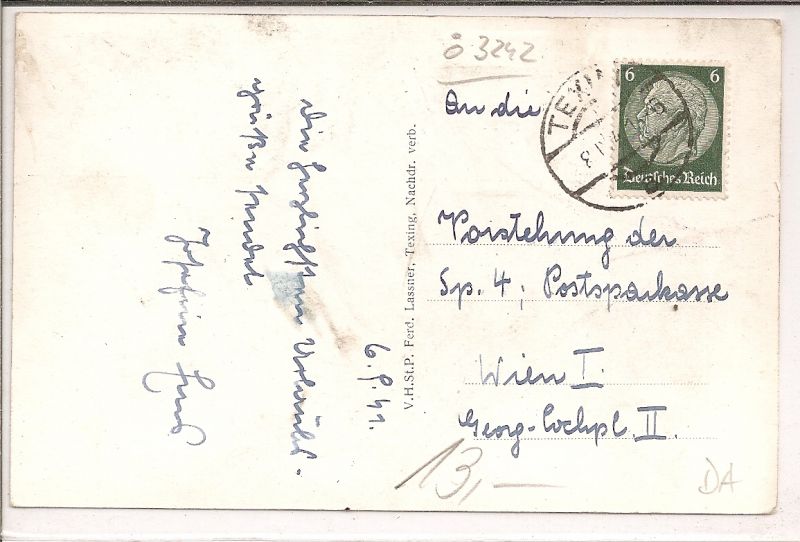 ö 3242
An die
6 6
Deutsches Reich
TEXIN
Vorstehung der
Sp. 4, Postsparkasse
Wien I.
Georg-Cochpl. II.
13,—
DA
V.H.St.P. Ferd. Lassner, Texing, Nachdr. verb.
6.9.41.
Die herzlichsten Urlaubs-
grüße sendet